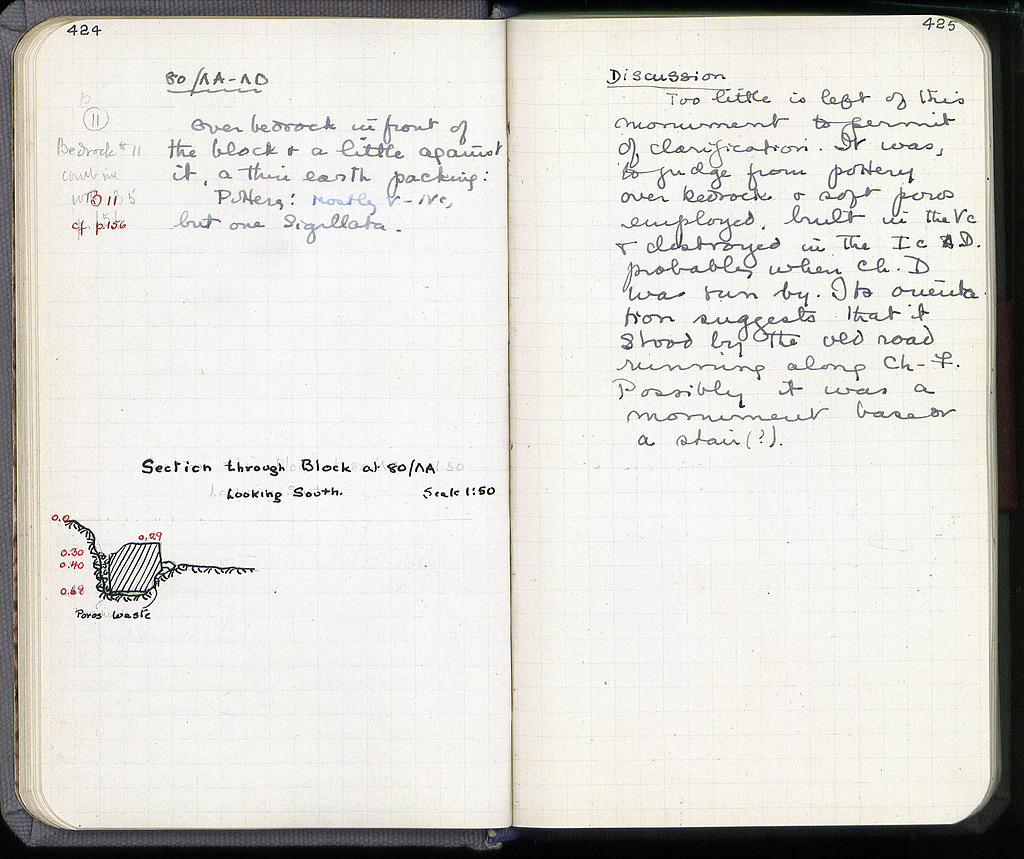 424
80/ΛΑ-ΛΒ
B
11
Over bedrock in front of
Bedrock # 11
the block & a little against
combine
it, a thin earth packing:
B 11
Pottery: mostly V-IVc,
cf. p.156
but one Sigillata.
Section through Block at 80/ΛΑ
Looking South.
Scale 1:50
0.0
0.29
0.30
0.40
0.68
Poros waste
425
Discussion
Too little is left of this
monument to permit
of clarification. It was,
to judge from pottery
over bedrock & soft poros
employed, built in the Vc
& destroyed in the I c A.D.
probably when Ch. D
was run by. Its orienta-
tion suggests that it
stood by the old road
running along Ch-F.
Possibly it was a
monument base or
a stair(?).